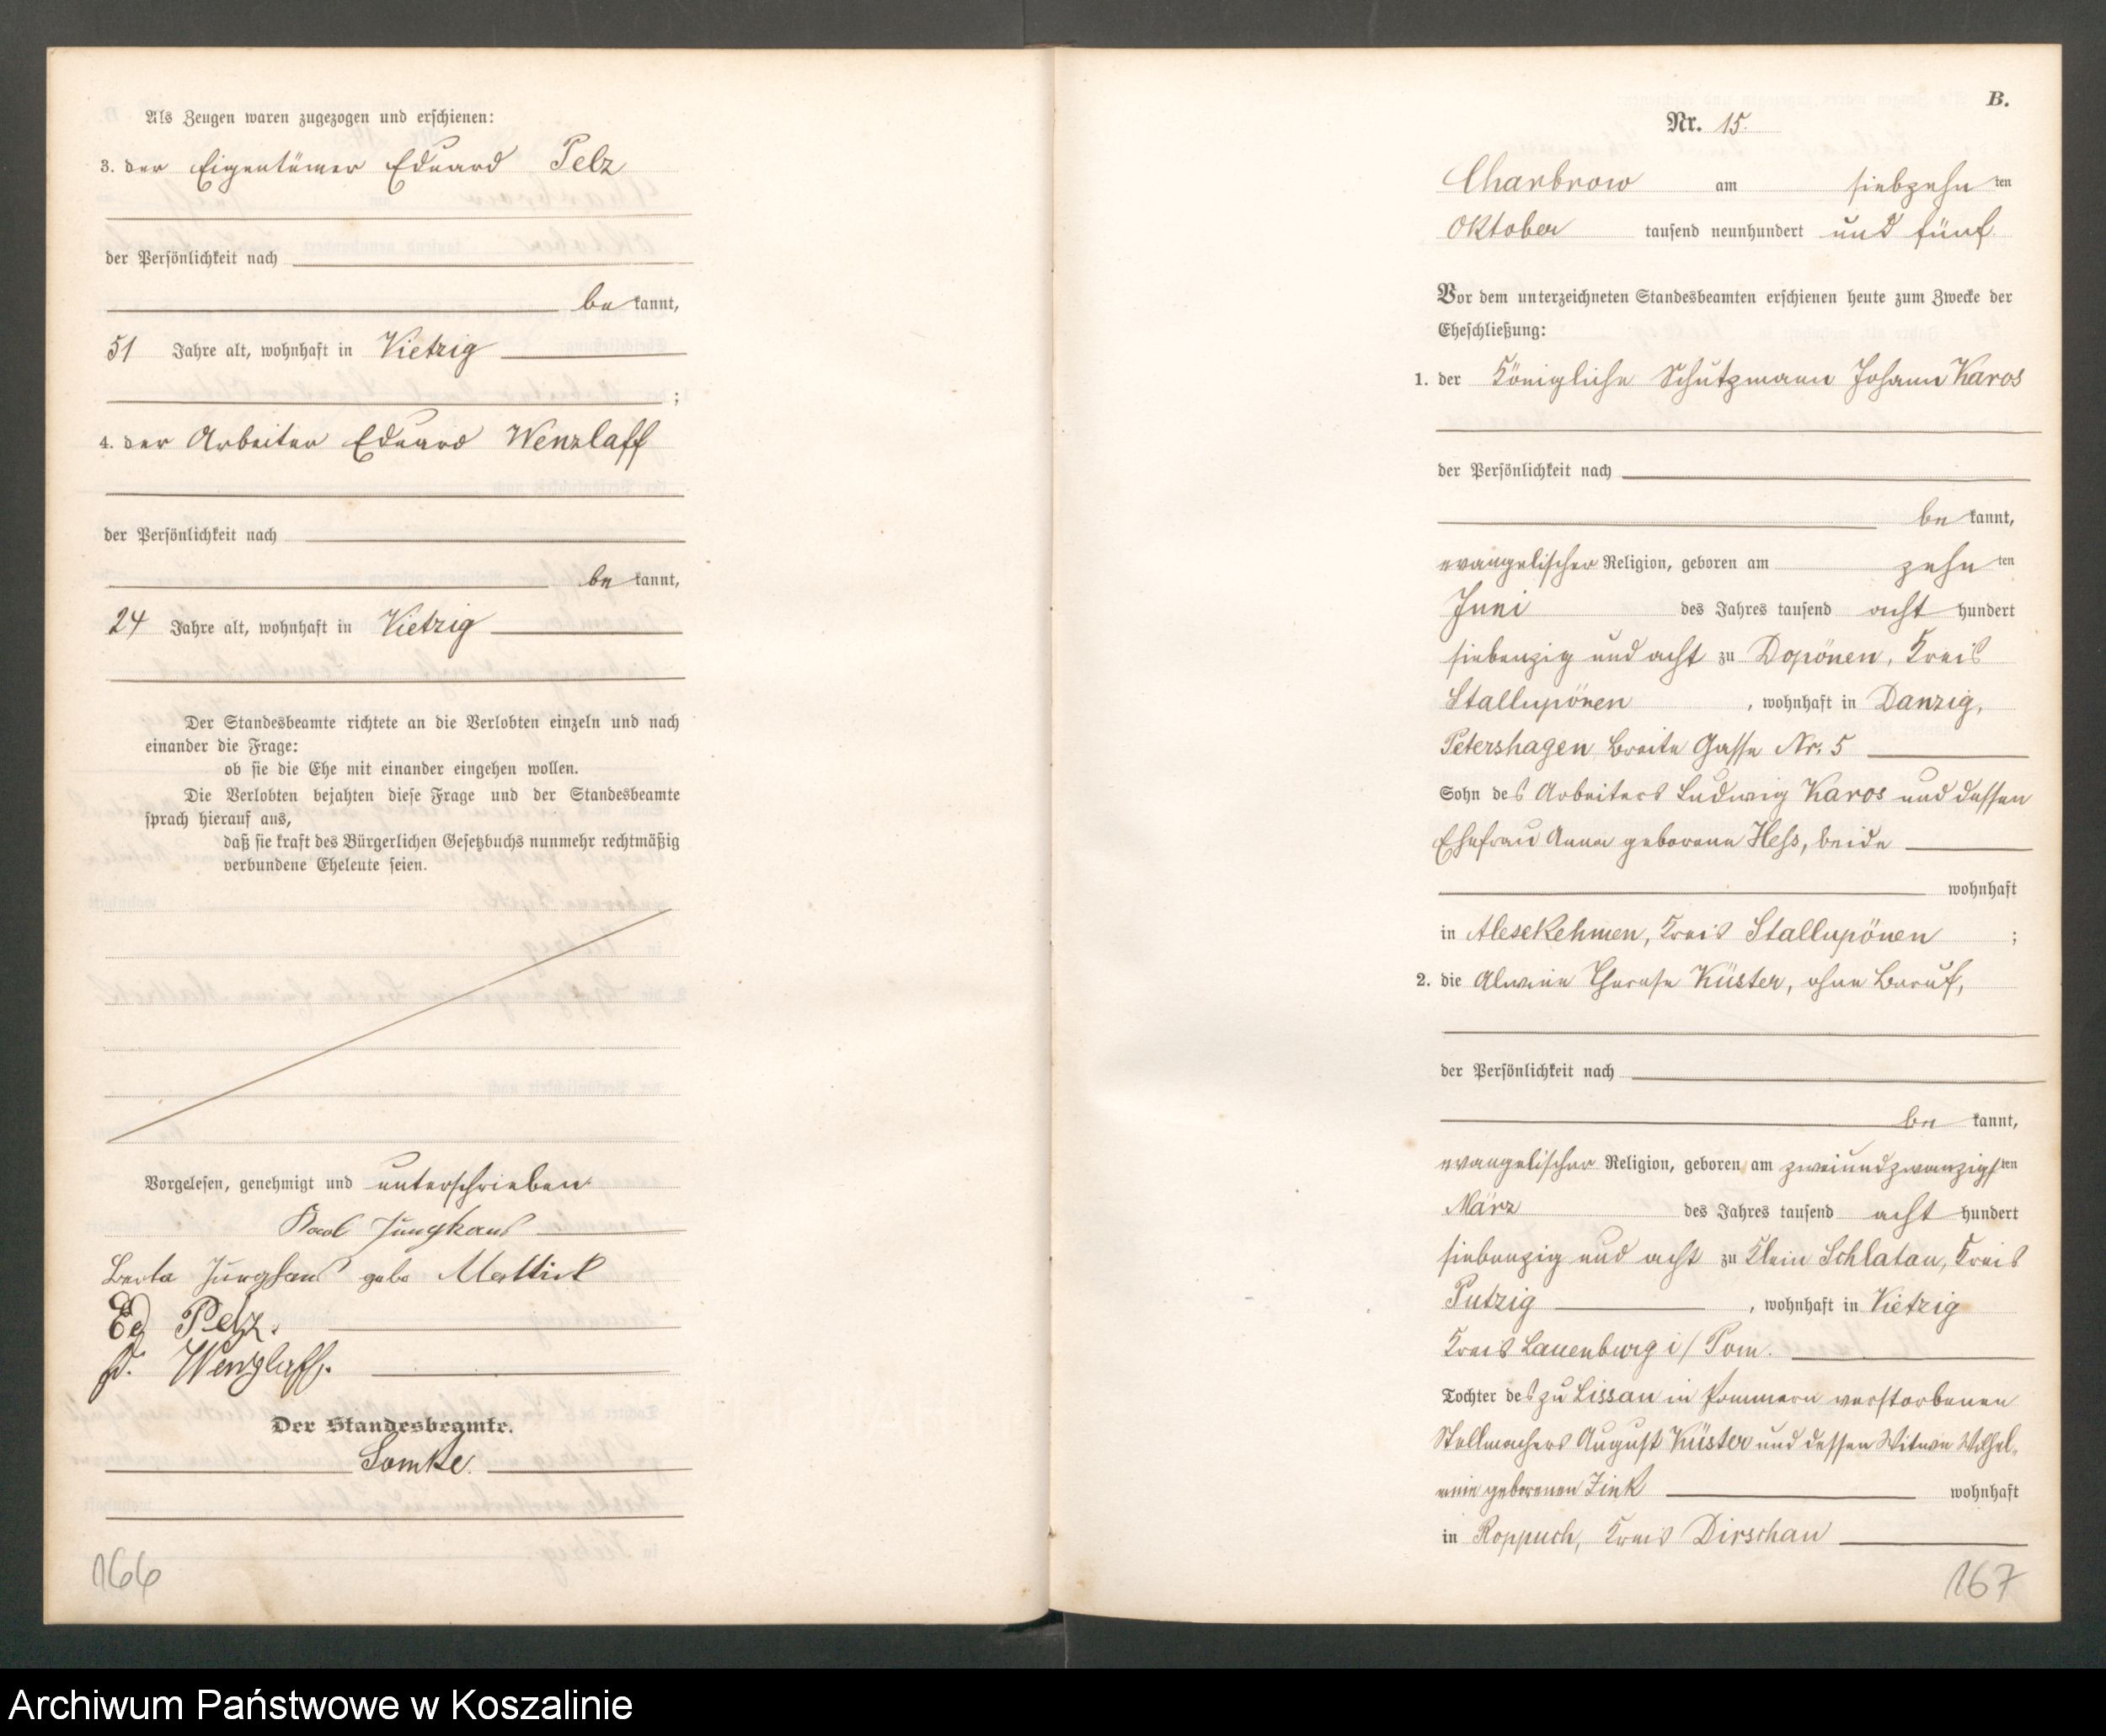 Als Zeugen waren zugezogen und erschienen:
3. der Eigentümer Eduard Pelz
der Persönlichkeit nach
be kannt,
51 Jahre alt, wohnhaft in Vietzig
;
4. der Arbeiter Eduard Wenzlaff
der Persönlichkeit nach
be kannt,
24 Jahre alt, wohnhaft in Vietzig
Der Standesbeamte richtete an die Verlobten einzeln und nach
einander die Frage:
ob sie die Ehe mit einander eingehen wollen.
Die Verlobten bejahten diese Frage und der Standesbeamte
sprach hierauf aus,
daß sie kraft des Bürgerlichen Gesetzbuchs nunmehr rechtmäßig
verbundene Eheleute seien.
Vorgelesen, genehmigt und unterschrieben
Karl Junghans
Berta Junghans geb. Mallick
Ed Pelz.
Wenzlaff.
Der Standesbeamte.
Lomke.
166
B.
Nr. 15.
Charbrow am siebzehn ten
Oktober tausend neunhundert und fünf.
Vor dem unterzeichneten Standesbeamten erschienen heute zum Zwecke der
Eheschließung:
1. der Königliche Schutzmann Johann Karos
der Persönlichkeit nach
be kannt,
evangelischer Religion, geboren am zehn ten
Juni des Jahres tausend acht hundert
siebenzig und acht zu Dopönen, Kreis
Stallupönen , wohnhaft in Danzig,
Petershagen Breite Gasse Nr. 5
Sohn des Arbeiters Ludwig Karos und dessen
Ehefrau Anna geborene Hess, beide
wohnhaft
in Alesekehmen, Kreis Stallupönen ;
2. die Alwine Therese Küster, ohne Beruf,
der Persönlichkeit nach
be kannt,
evangelischer Religion, geboren am zweiundzwanzigsten
März des Jahres tausend acht hundert
siebenzig und acht zu Klein Schlatau, Kreis
Putzig , wohnhaft in Vietzig
Kreis Lauenburg i/Pom.
Tochter des zu Lissau in Pommern verstorbenen
Stellmachers August Küster und dessen Witwe Wilhel-
mine geborenen Zink wohnhaft
in Roppuch, Kreis Dirschau
167
Archiwum Państwowe w Koszalinie